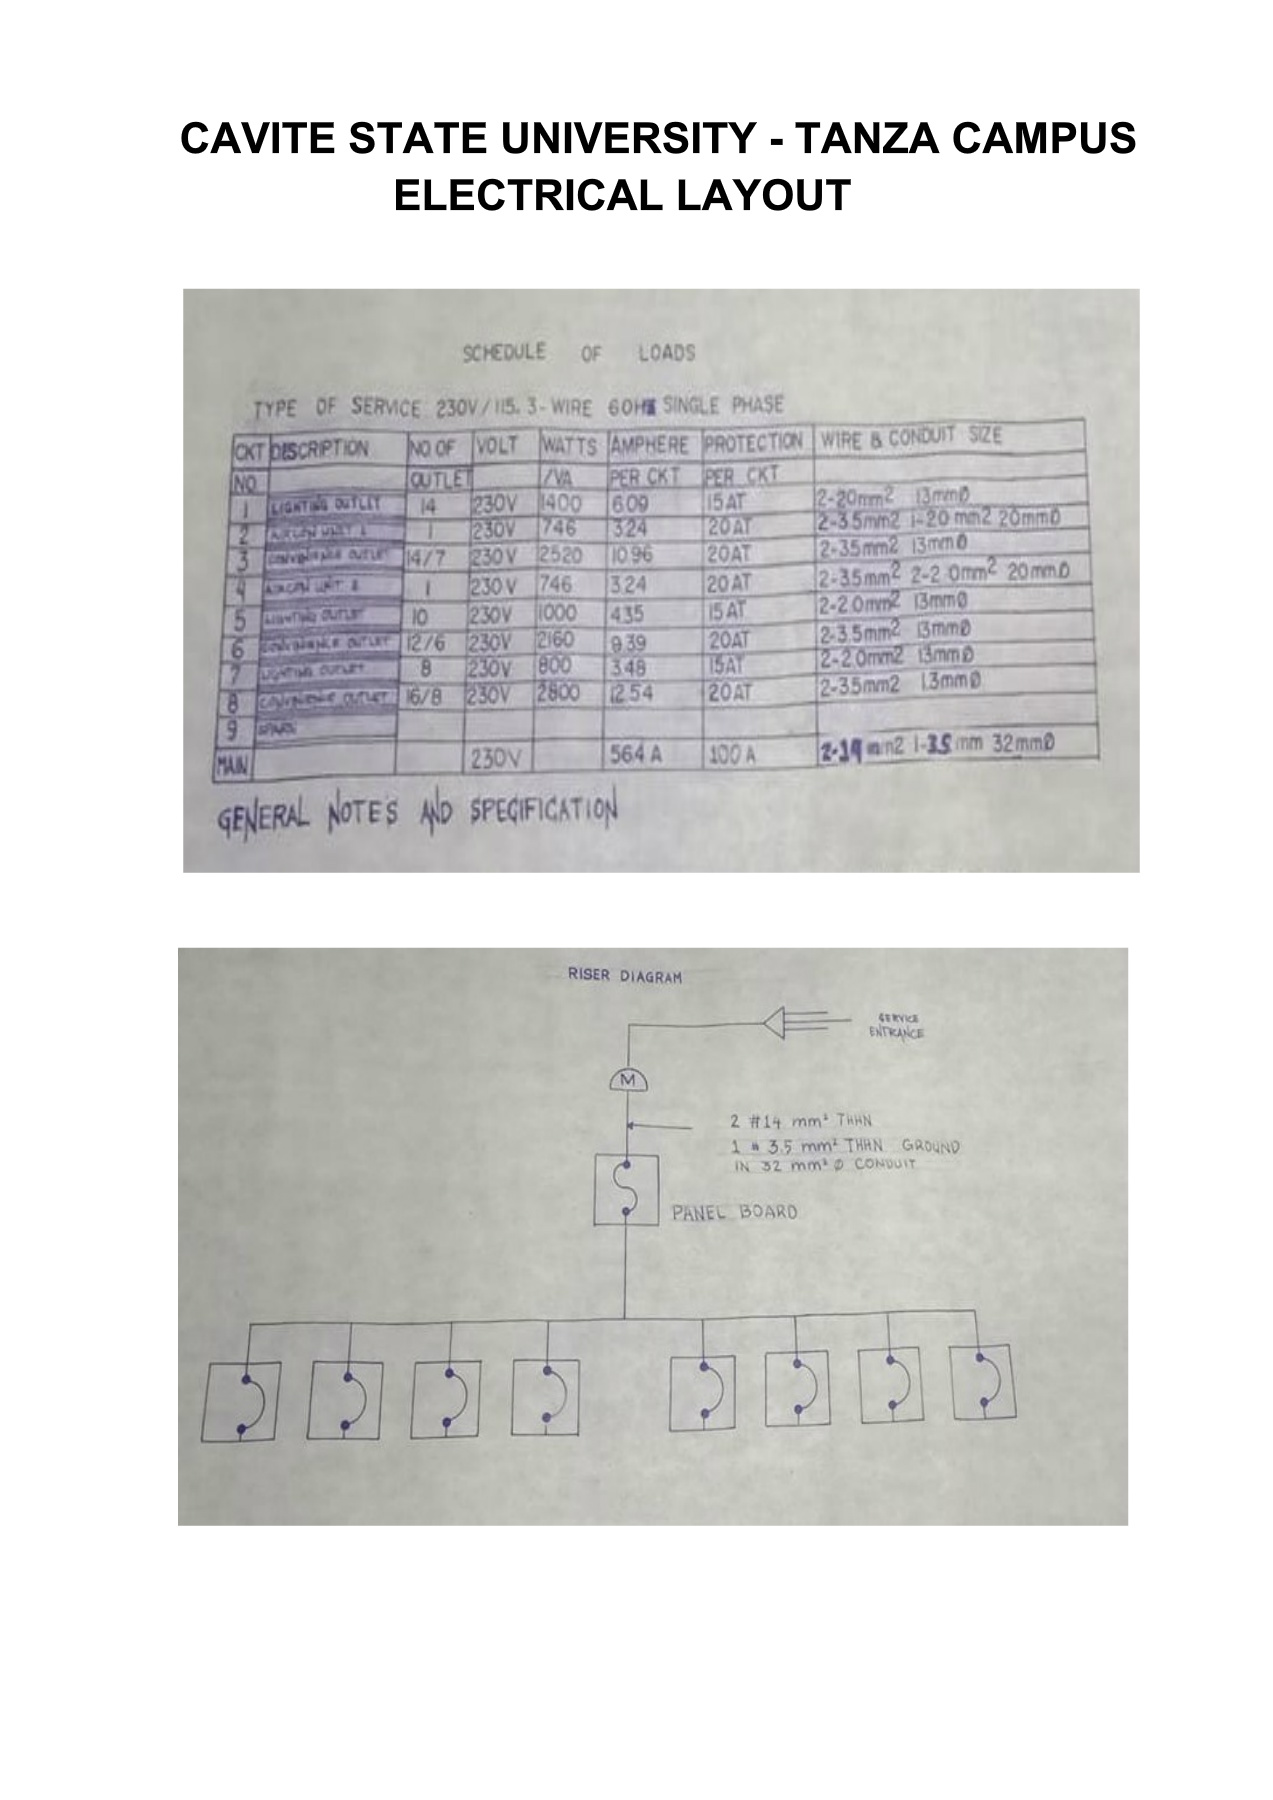 CAVITE STATE UNIVERSITY - TANZA CAMPUS
ELECTRICAL LAYOUT
SCHEDULE OF LOADS
TYPE OF SERVICE 230V/115. 3-WIRE 60HZ SINGLE PHASE
CKT DESCRIPTION NO OF VOLT WATTS AMPHERE PROTECTION WIRE & CONDUIT SIZE
NO OUTLET /VA PER CKT PER CKT
1 LIGHTING OUTLET 14 230V 1400 609 15AT 2-20mm2 13mmØ
2 AIRCON UNIT 1 1 230V 746 324 20AT 2-35mm2 1-20mm2 20mmØ
3 CONVENIENCE OUTLET 14/7 230V 2520 1096 20AT 2-35mm2 13mmØ
4 AIRCON UNIT 2 1 230V 746 324 20AT 2-35mm2 2-20mm2 20mmØ
5 LIGHTING OUTLET 10 230V 1000 435 15AT 2-20mm2 13mmØ
6 CONVENIENCE OUTLET 12/6 230V 2160 939 20AT 2-3.5mm2 13mmØ
7 LIGHTING OUTLET 8 230V 800 348 15AT 2-20mm2 13mmØ
8 CONVENIENCE OUTLET 16/8 230V 2800 1254 20AT 2-35mm2 13mmØ
9 SPARE
MAIN 230V 564 A 100 A 2-14mm2 1-3.5mm 32mmØ
GENERAL NOTES AND SPECIFICATION
RISER DIAGRAM
SERVICE
ENTRANCE
M
2 #14 mm² THHN
1 # 3.5 mm² THHN GROUND
IN 32 mm² Ø CONDUIT
PANEL BOARD